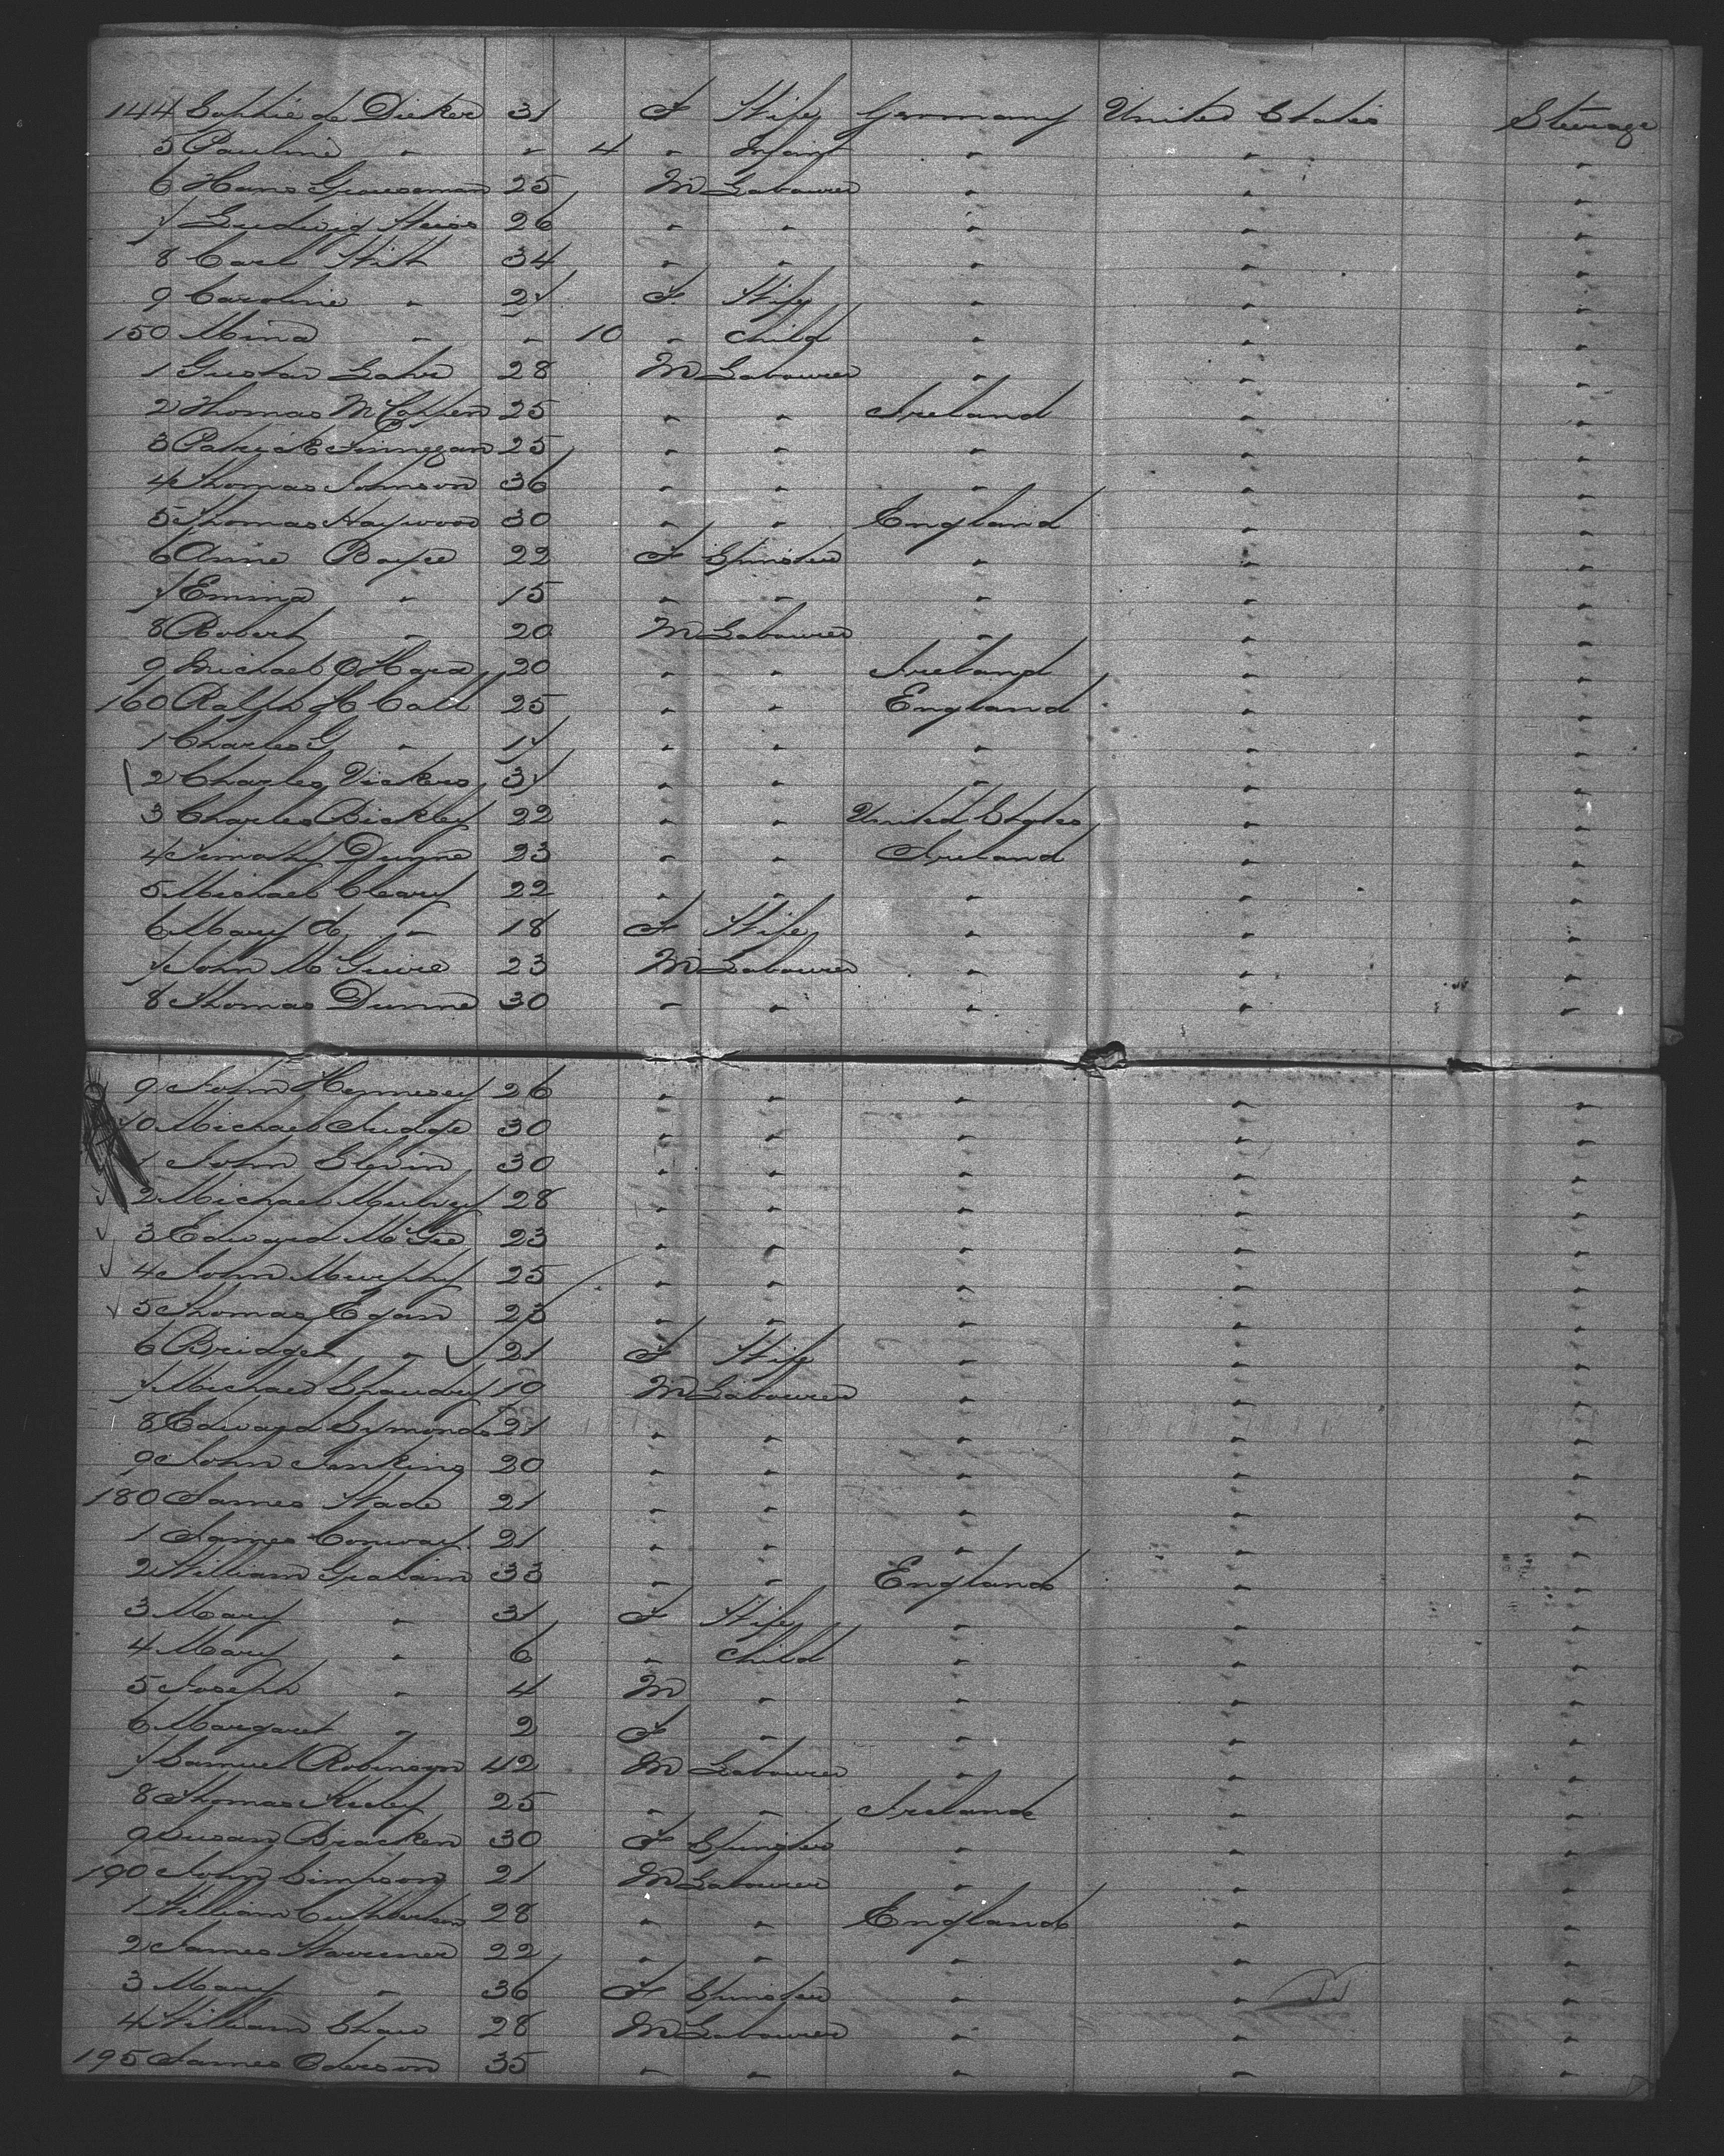 144 Sophie de Dicker 31 F Wife Germany United States Steerage
5 Pauline " " 4 " Infant " " "
6 Hans 25 M Labourer " " "
7 Ludwig Weiss 26 " " " " "
8 Carl Witt 34 " " " " "
9 Caroline " 27 F Wife " " "
150 Mina " " 10 " Child " " "
1 Gustav 28 M Labourer " " "
2 Thomas 25 " " Ireland " "
3 Patrick Finnegan 25 " " " " "
4 Thomas Johnson 36 " " " " "
5 Thomas Haywood 30 " " England " "
6 Anne Boyce 22 F Spinster " " "
7 Emma " 15 " " " " "
8 Robert " 20 M Labourer " " "
9 Michael O'Hara 20 " " Ireland " "
160 Ralph H Call 25 " " England " "
1 Charles G " 17 " " " " "
2 Charles Vickers 37 " " " " "
3 Charles Bickley 22 " " United States " "
4 Timothy Dunne 23 " " Ireland " "
5 Michael Cleary 22 " " " " "
6 Mary A " 18 F Wife " " "
7 John McGuire 23 M Labourer " " "
8 Thomas Dunne 30 " " " " "
9 John Hennesey 26 " " " " "
70 Michael Judge 30 " " " " "
1 John Slevin 30 " " " " "
2 Michael Mulvey 28 " " " " "
3 Edward McGee 23 " " " " "
4 John Murphy 25 " " " " "
5 Thomas Egan 23 " " " " "
6 Bridget " 21 F Wife " " "
7 Michael 10 M Labourer " " "
8 Edward Symonds 21 " " " " "
9 John Jenkins 20 " " " " "
180 James Wade 21 " " " " "
1 James Conway 21 " " " " "
2 William Graham 33 " " England " "
3 Mary " 31 F Wife " " "
4 Mary " 6 " Child " " "
5 Joseph " 4 M " " " "
6 Margaret " 2 F " " " "
7 Samuel Robinson 42 M Labourer " " "
8 Thomas 25 " " Ireland " "
9 Susan Bracken 30 F Spinster " " "
190 John Simpson 21 M Labourer " " "
1 William Cuthbertson 28 " " England " "
2 James Warriner 22 " " " " "
3 Mary " 36 F Spinster " " "
4 William Shaw 28 M Labourer " " "
195 James 35 " " " " "